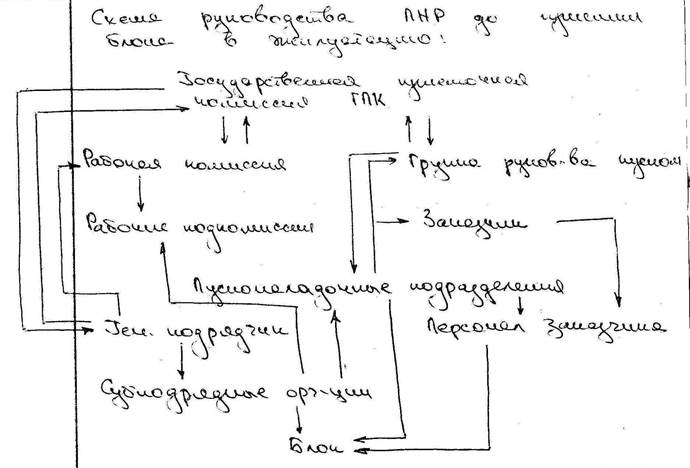 Схема руководства ПНР до приемки
блока в эксплуатацию:
Государственная приемочная
комиссия ГПК
Рабочая комиссия
Группа руков-ва пуском
Рабочие подкомиссии
Заказчик
Пусконаладочные подразделения
Ген. подрядчик
Персонал Заказчика
Субподрядные орг-ции
Блок